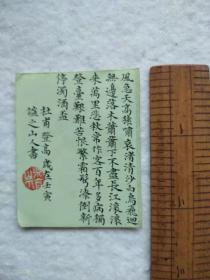 風急天高猿嘯哀渚清沙白鳥飛迴
無邊落木蕭蕭下不盡長江滾滾
來萬里悲秋常作客百年多病獨
登臺艱難苦恨繁霜鬢潦倒新
停濁酒盃
杜甫登高歲在壬寅
之山人書